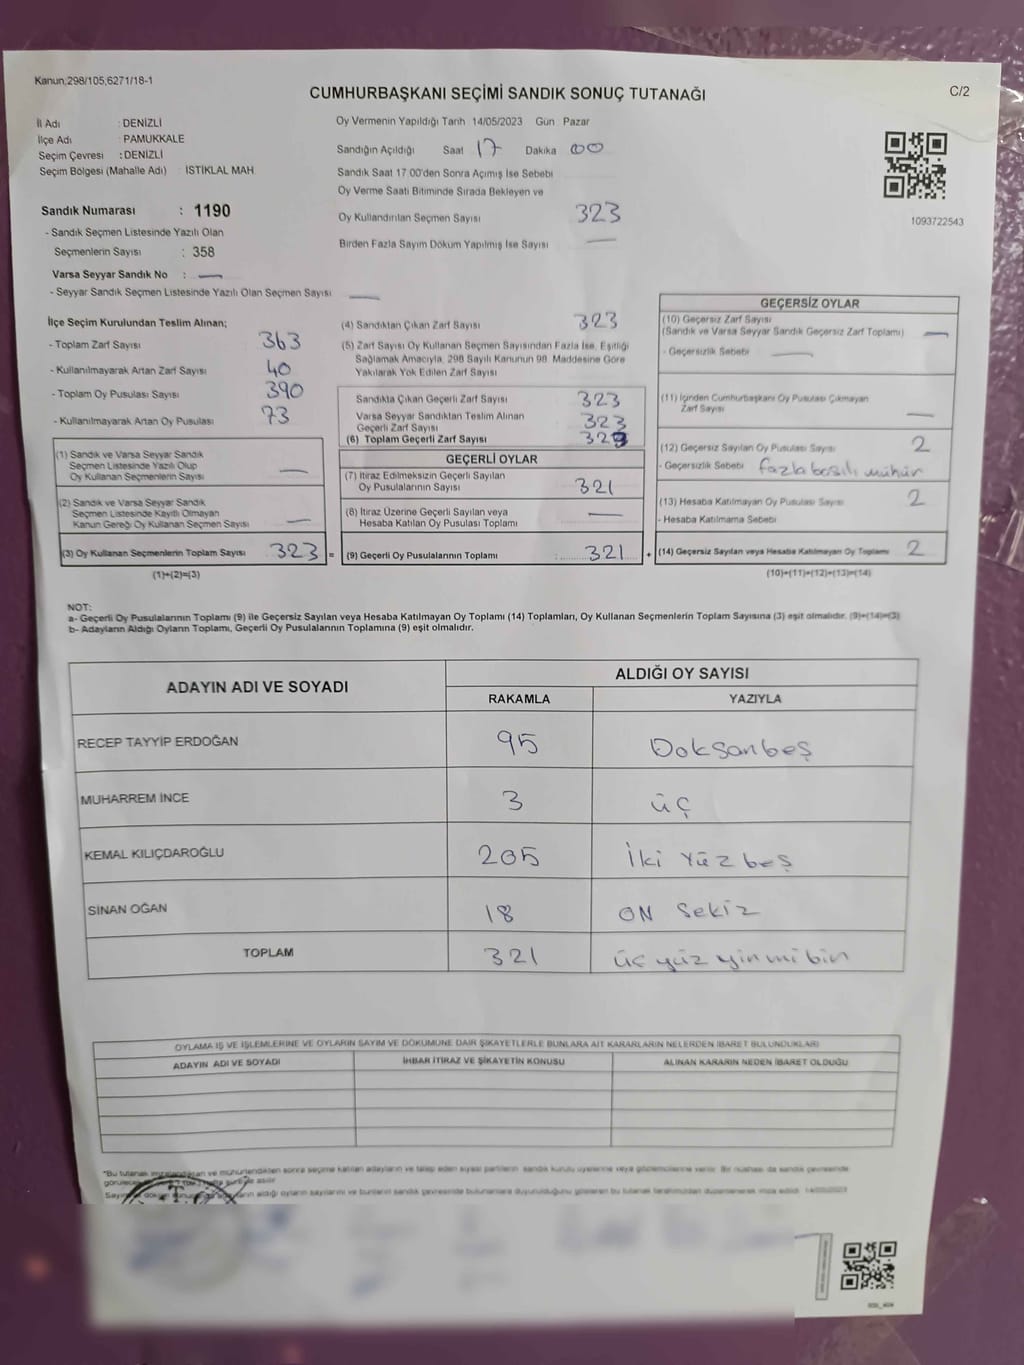 Kanun,298/105,6271/18-1
CUMHURBAŞKANI SEÇİMİ SANDIK SONUÇ TUTANAĞI
C/2
İl Adı : DENİZLİ
İlçe Adı : PAMUKKALE
Seçim Çevresi : DENİZLİ
Seçim Bölgesi (Mahalle Adı) : İSTİKLAL MAH
Sandık Numarası : 1190
- Sandık Seçmen Listesinde Yazılı Olan
Seçmenlerin Sayısı : 358
Varsa Seyyar Sandık No : —
- Seyyar Sandık Seçmen Listesinde Yazılı Olan Seçmen Sayısı —
Oy Vermenin Yapıldığı Tarih 14/05/2023 Gün Pazar
Sandığın Açıldığı Saat 17 Dakika 00
Sandık Saat 17.00'den Sonra Açımış İse Sebebi
Oy Verme Saati Bitiminde Sırada Bekleyen ve
Oy Kullandırılan Seçmen Sayısı 323
Birden Fazla Sayım Döküm Yapılmış İse Sayısı —
1093722543
İlçe Seçim Kurulundan Teslim Alınan;
- Toplam Zarf Sayısı 363
- Kullanılmayarak Artan Zarf Sayısı 40
- Toplam Oy Pusulası Sayısı 390
- Kullanılmayarak Artan Oy Pusulası 73
(1) Sandık ve Varsa Seyyar Sandık
Seçmen Listesinde Yazılı Olup
Oy Kullanan Seçmenlerin Sayısı —
(2) Sandık ve Varsa Seyyar Sandık
Seçmen Listesinde Kayıtlı Olmayan
Kanun Gereği Oy Kullanan Seçmen Sayısı —
(3) Oy Kullanan Seçmenlerin Toplam Sayısı 323 =
(1)+(2)=(3)
(4) Sandıktan Çıkan Zarf Sayısı 323
(5) Zarf Sayısı Oy Kullanan Seçmen Sayısından Fazla İse, Eşitliği
Sağlamak Amacıyla, 298 Sayılı Kanunun 98. Maddesine Göre
Yakılarak Yok Edilen Zarf Sayısı
Sandıkta Çıkan Geçerli Zarf Sayısı 323
Varsa Seyyar Sandıktan Teslim Alınan
Geçerli Zarf Sayısı 323
(6) Toplam Geçerli Zarf Sayısı 323
GEÇERLİ OYLAR
(7) İtiraz Edilmeksizin Geçerli Sayılan
Oy Pusulalarının Sayısı 321
(8) İtiraz Üzerine Geçerli Sayılan veya
Hesaba Katılan Oy Pusulası Toplamı —
(9) Geçerli Oy Pusulalarının Toplamı : 321 +
GEÇERSİZ OYLAR
(10) Geçersiz Zarf Sayısı
(Sandık ve Varsa Seyyar Sandık Geçersiz Zarf Toplamı) —
- Geçersizlik Sebebi —
(11) İçinden Cumhurbaşkanı Oy Pusulası Çıkmayan
Zarf Sayısı —
(12) Geçersiz Sayılan Oy Pusulası Sayısı 2
- Geçersizlik Sebebi fazla basılı mühür
(13) Hesaba Katılmayan Oy Pusulası Sayısı 2
- Hesaba Katılmama Sebebi
(14) Geçersiz Sayılan veya Hesaba Katılmayan Oy Toplamı 2
(10)+(11)+(12)+(13)=(14)
NOT:
a- Geçerli Oy Pusulasının Toplamı (9) ile Geçersiz Sayılan veya Hesaba Katılmayan Oy Toplamı (14) Toplamları, Oy Kullanan Seçmenlerin Toplam Sayısına (3) eşit olmalıdır. (9)+(14)=(3)
b- Adayların Aldığı Oyların Toplamı, Geçerli Oy Pusulalarının Toplamına (9) eşit olmalıdır.
ADAYIN ADI VE SOYADI ALDIĞI OY SAYISI
RAKAMLA YAZIYLA
RECEP TAYYİP ERDOĞAN 95 Doksanbeş
MUHARREM İNCE 3 üç
KEMAL KILIÇDAROĞLU 205 İki Yüz beş
SİNAN OĞAN 18 ON Sekiz
TOPLAM 321 üç yüz yirmi bin
OYLAMA İŞ VE İŞLEMLERİNE VE OYLARIN SAYIM VE DÖKÜMÜNE DAİR ŞİKAYETLERLE BUNLARA AİT KARARLARIN NELERDEN İBARET BULUNDUKLARI
ADAYIN ADI VE SOYADI İHBAR İTİRAZ VE ŞİKAYETİN KONUSU ALINAN KARARIN NEDEN İBARET OLDUĞU
*Bu tutanak imzalandıktan ve mühürlendikten sonra seçime katılan adayların ve talep eden siyasi partilerin sandık kurulu üyelerine veya gözlemcilerine verilir. Bir nüshası da sandık çevresinde
aldığı oyların sayılarını ve bunların sandık çevresinde bulunanlara duyurulduğunu gösteren bu tutanak tarafımızdan düzenlenerek imza edildi. 14/05/2023